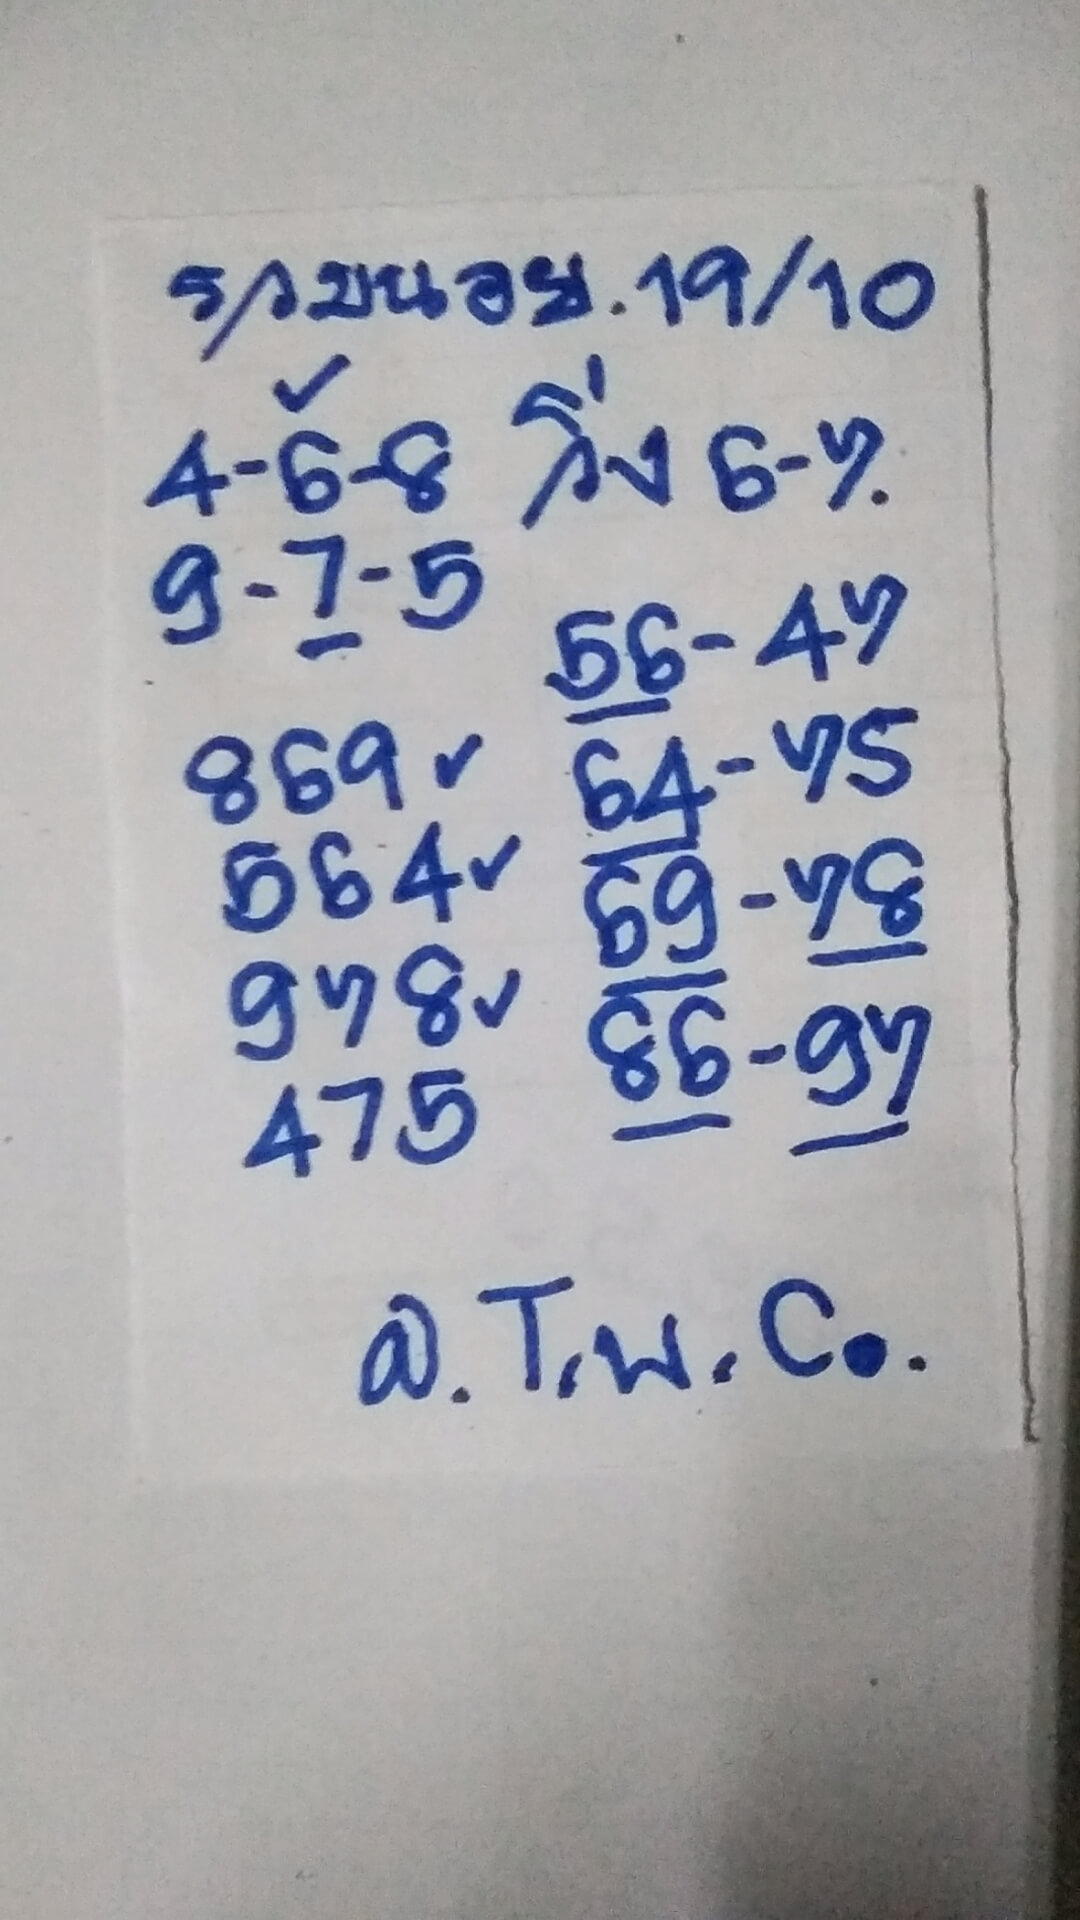 รวมนอย.19/10
4-6-8 วิ่ง 6-7.
9-7-5
56-47
869✓ 64-75
564✓ 69-78
978✓ 86-97
475
อ.T.พ.Co.